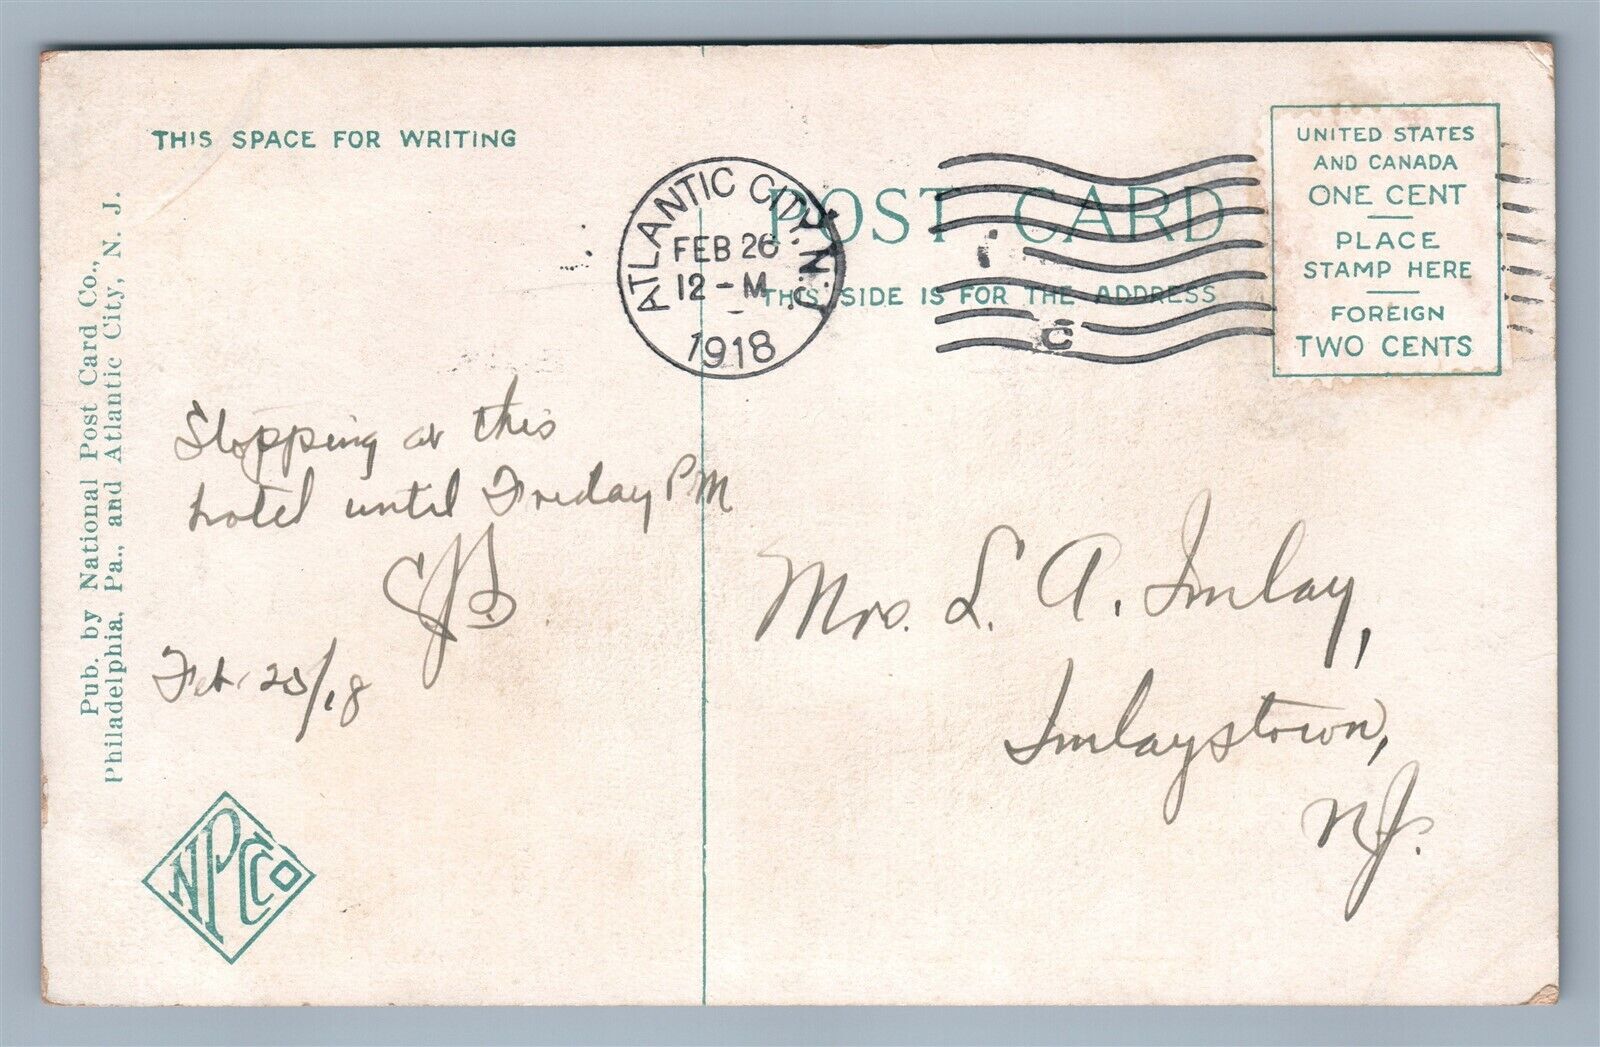 THIS SPACE FOR WRITING
Pub. by National Post Card Co.,
Philadelphia, Pa., and Atlantic City, N. J.
ATLANTIC CITY, N.J.
FEB 26
12 - M
1918
POST CARD
THIS SIDE IS FOR THE ADDRESS
UNITED STATES
AND CANADA
ONE CENT
PLACE
STAMP HERE
FOREIGN
TWO CENTS
Stopping at this
hotel until Friday PM
Feb. 25/18
Mrs. L. A. Imlay,
Imlaystown,
N.J.
NPCCo